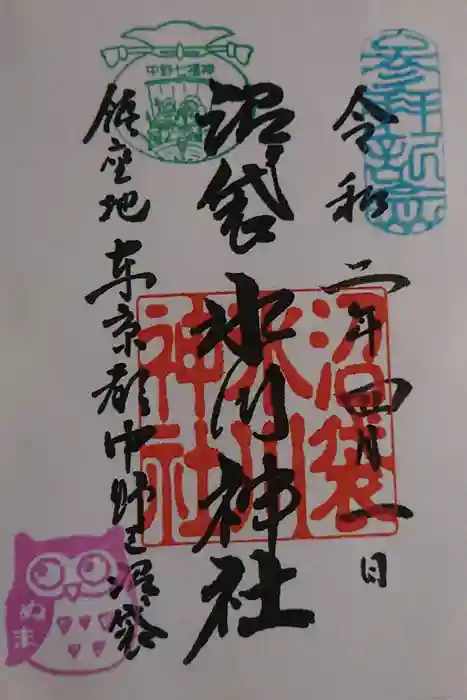 参拝記念
令和二年四月一日
中野七福神
沼袋氷川神社
沼袋
氷川
神社
鎮座地 東京都中野区沼袋
ぬま